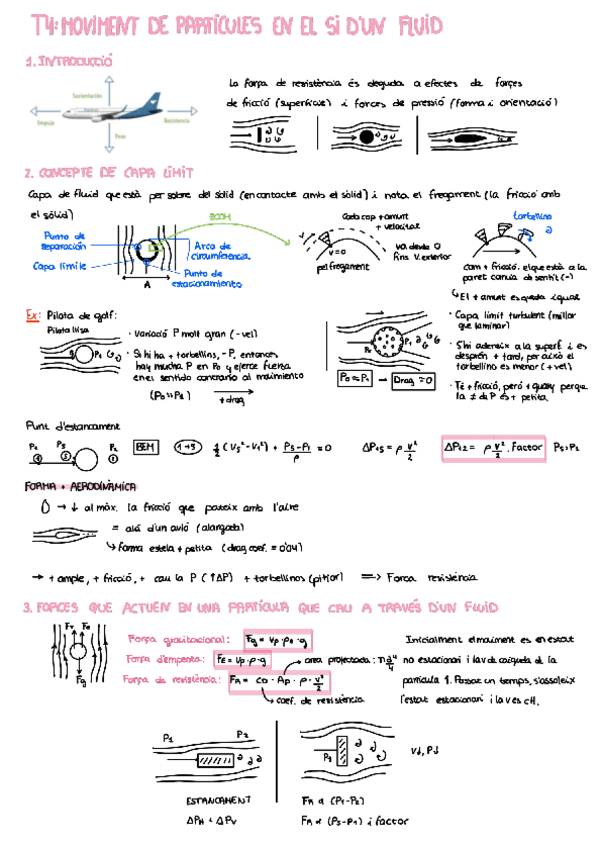 T4: MOVIMENT DE PARTÍCULES EN EL SI D'UN FLUID
1. INTRODUCCIÓ
Sustentación
Empuje
Resistencia
Peso
La força de resistència és deguda a efectes de forçes
de fricció (superfície) i forces de pressió (forma i orientació)
2. CONCEPTE DE CAPA LÍMIT
Capa de fluid que està per sobre del sòlid (en contacte amb el sòlid) i nota el fregament (la fricció amb
el sòlid)
Punto de separación
Capa límite
A
Arco de circumferencia
Punto de estacionamiento
ZOOM
Cada cop + amunt
+ velocitat
v=0
pel fregament
va desde 0
fins v. exterior
torbellino
com + fricció, el que està a la
paret canvia de sentit (-)
↳ El + amunt es queda igual
Ex: Pilota de golf:
Pilota llisa
· Variació P molt gran (- vel)
· Si hi ha + torbellins, - P, entonces
hay mucha P en P0 y ejerce fuerza
en el sentido contrario al movimiento
(P0 >> P1) → + drag
P0 ≈ P1 → Drag ≈ 0
· Capa límit turbulent (millor
que laminar)
· S'hi adereix a la superf. i es
desprèn + tard, per això el
torbellino es menor (+ vel)
· Té + fricció, però + guay perque
la ≠ de P és + petita.
Punt d'estancament
P1 Ps P2
BEM
1→s
½ (Vs² - V1²) + Ps-P1/ρ = 0
ΔP1s = ρ v²/2
ΔP12 = ρ v²/2 . Factor
Ps > P2
FORMA + AERODINÀMICA
→ ↓ al màx. la fricció que pateix amb l'aire
= ala d'un avió (alargada)
↳ forma estela + petita (drag coef. = 0'04)
→ + ample, + fricció, + cau la P (↑ΔP) + torbellinos (pitjor) => Força resistència
3. FORCES QUE ACTUEN EN UNA PARTÍCULA QUE CAU A TRAVÉS D'UN FLUID
Fg
Força gravitacional: Fg = Vp · ρp · g
Força d'empenta: FE = Vp · ρ · g
Força de resistència: FR = CD · Ap · ρ · v²/2
→ area projectada: π d²/4
↳ coef. de resistència
Inicialment el moviment es en estat
no estacionari i la v de caiguda de la
partícula ↑. Passat un temps, s'assoleix
l'estat estacionari i la v és ct.
P1 P2
ESTANCAMENT
P1
V↓, P↓
FR α (P1-P2)
FR α (Ps-P1) i factor